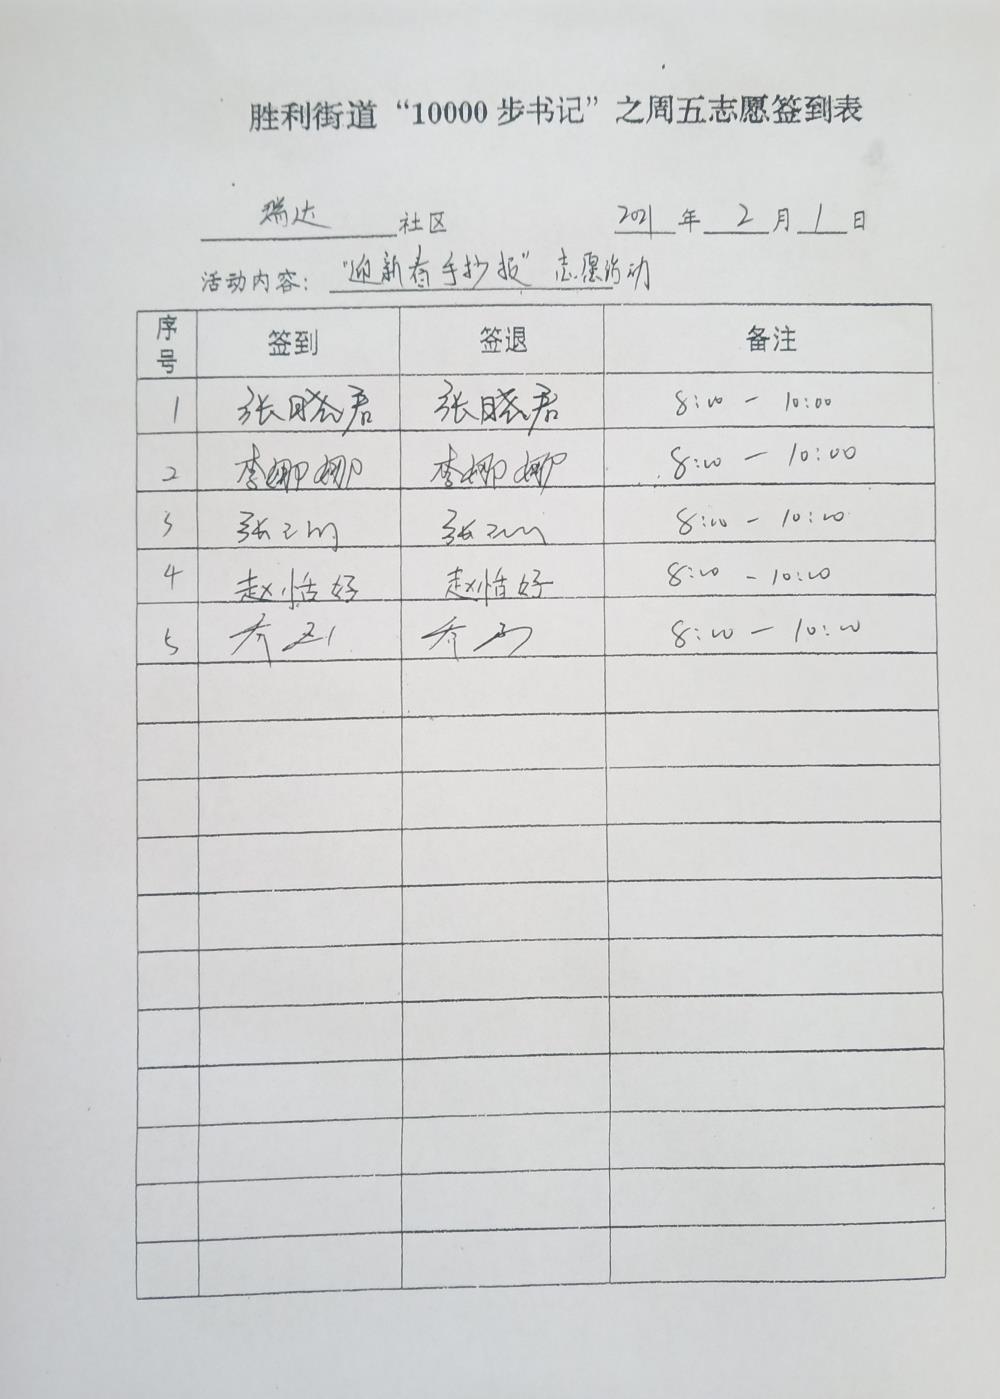 胜利街道“10000步书记”之周五志愿签到表
瑞达社区 2021年2月1日
活动内容：“迎新春手抄报”志愿活动
序号 签到 签退 备注
1 张晓君 张晓君 8:00 — 10:00
2 李娜娜 李娜娜 8:00 — 10:00
3 张 张 8:00 — 10:00
4 赵恬好 赵恬好 8:00 — 10:00
5 乔 乔 8:00 — 10:00